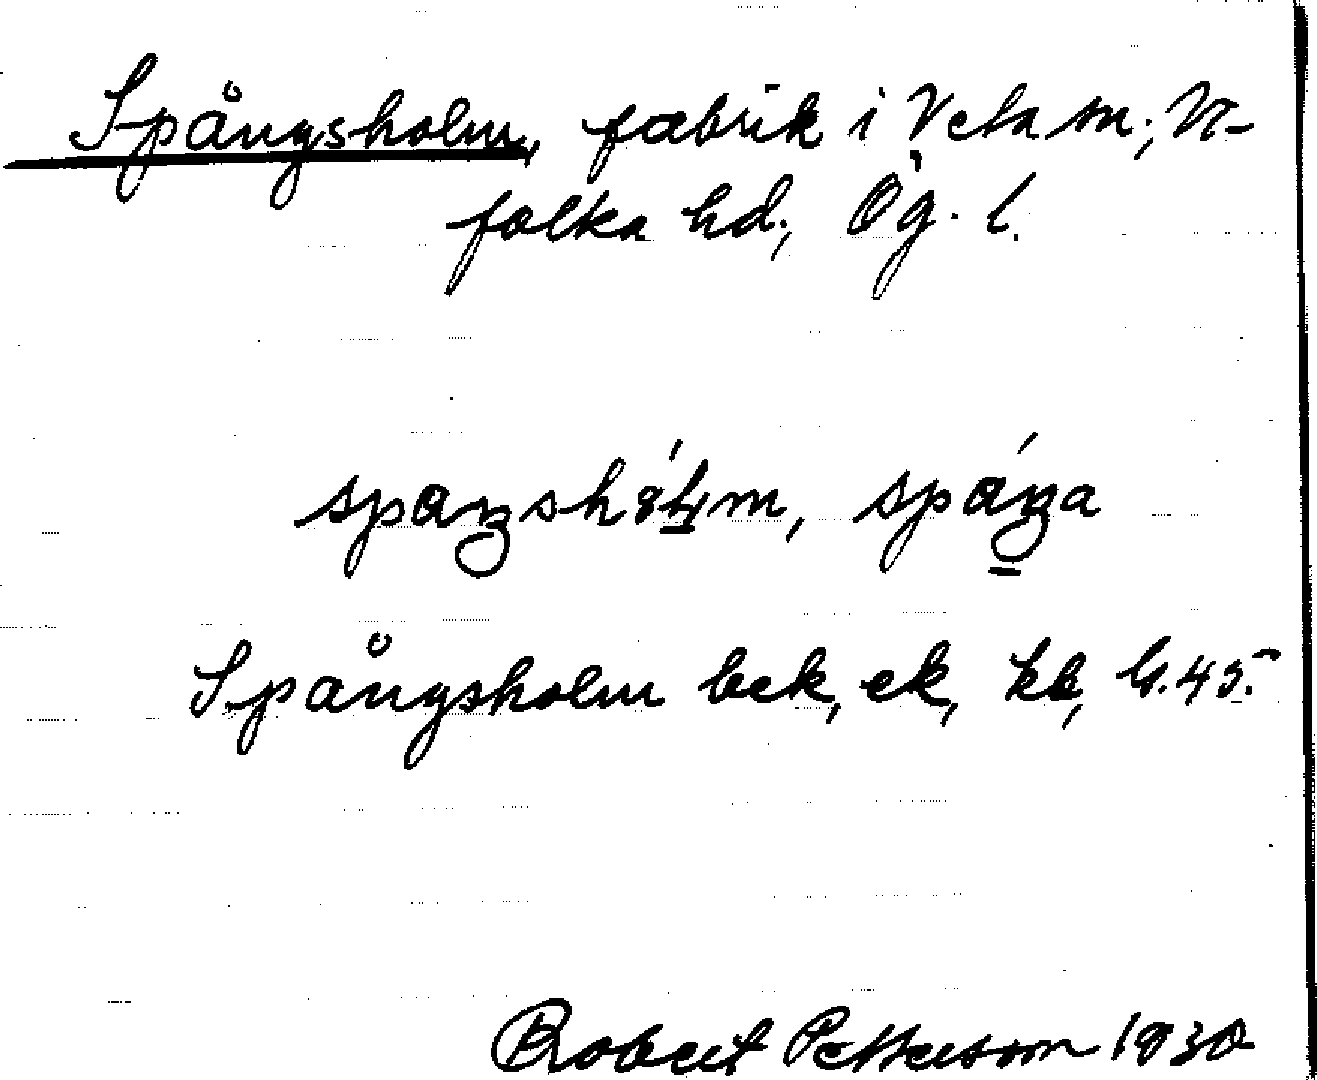 Spångsholm, fabrik i Veta sn; Vi-
folka hd; Ög. l.
spaŋshȯ́ḷm, spáŋa
Spångsholm bek, ek, kb, G.45.
Robert Petterson 1930